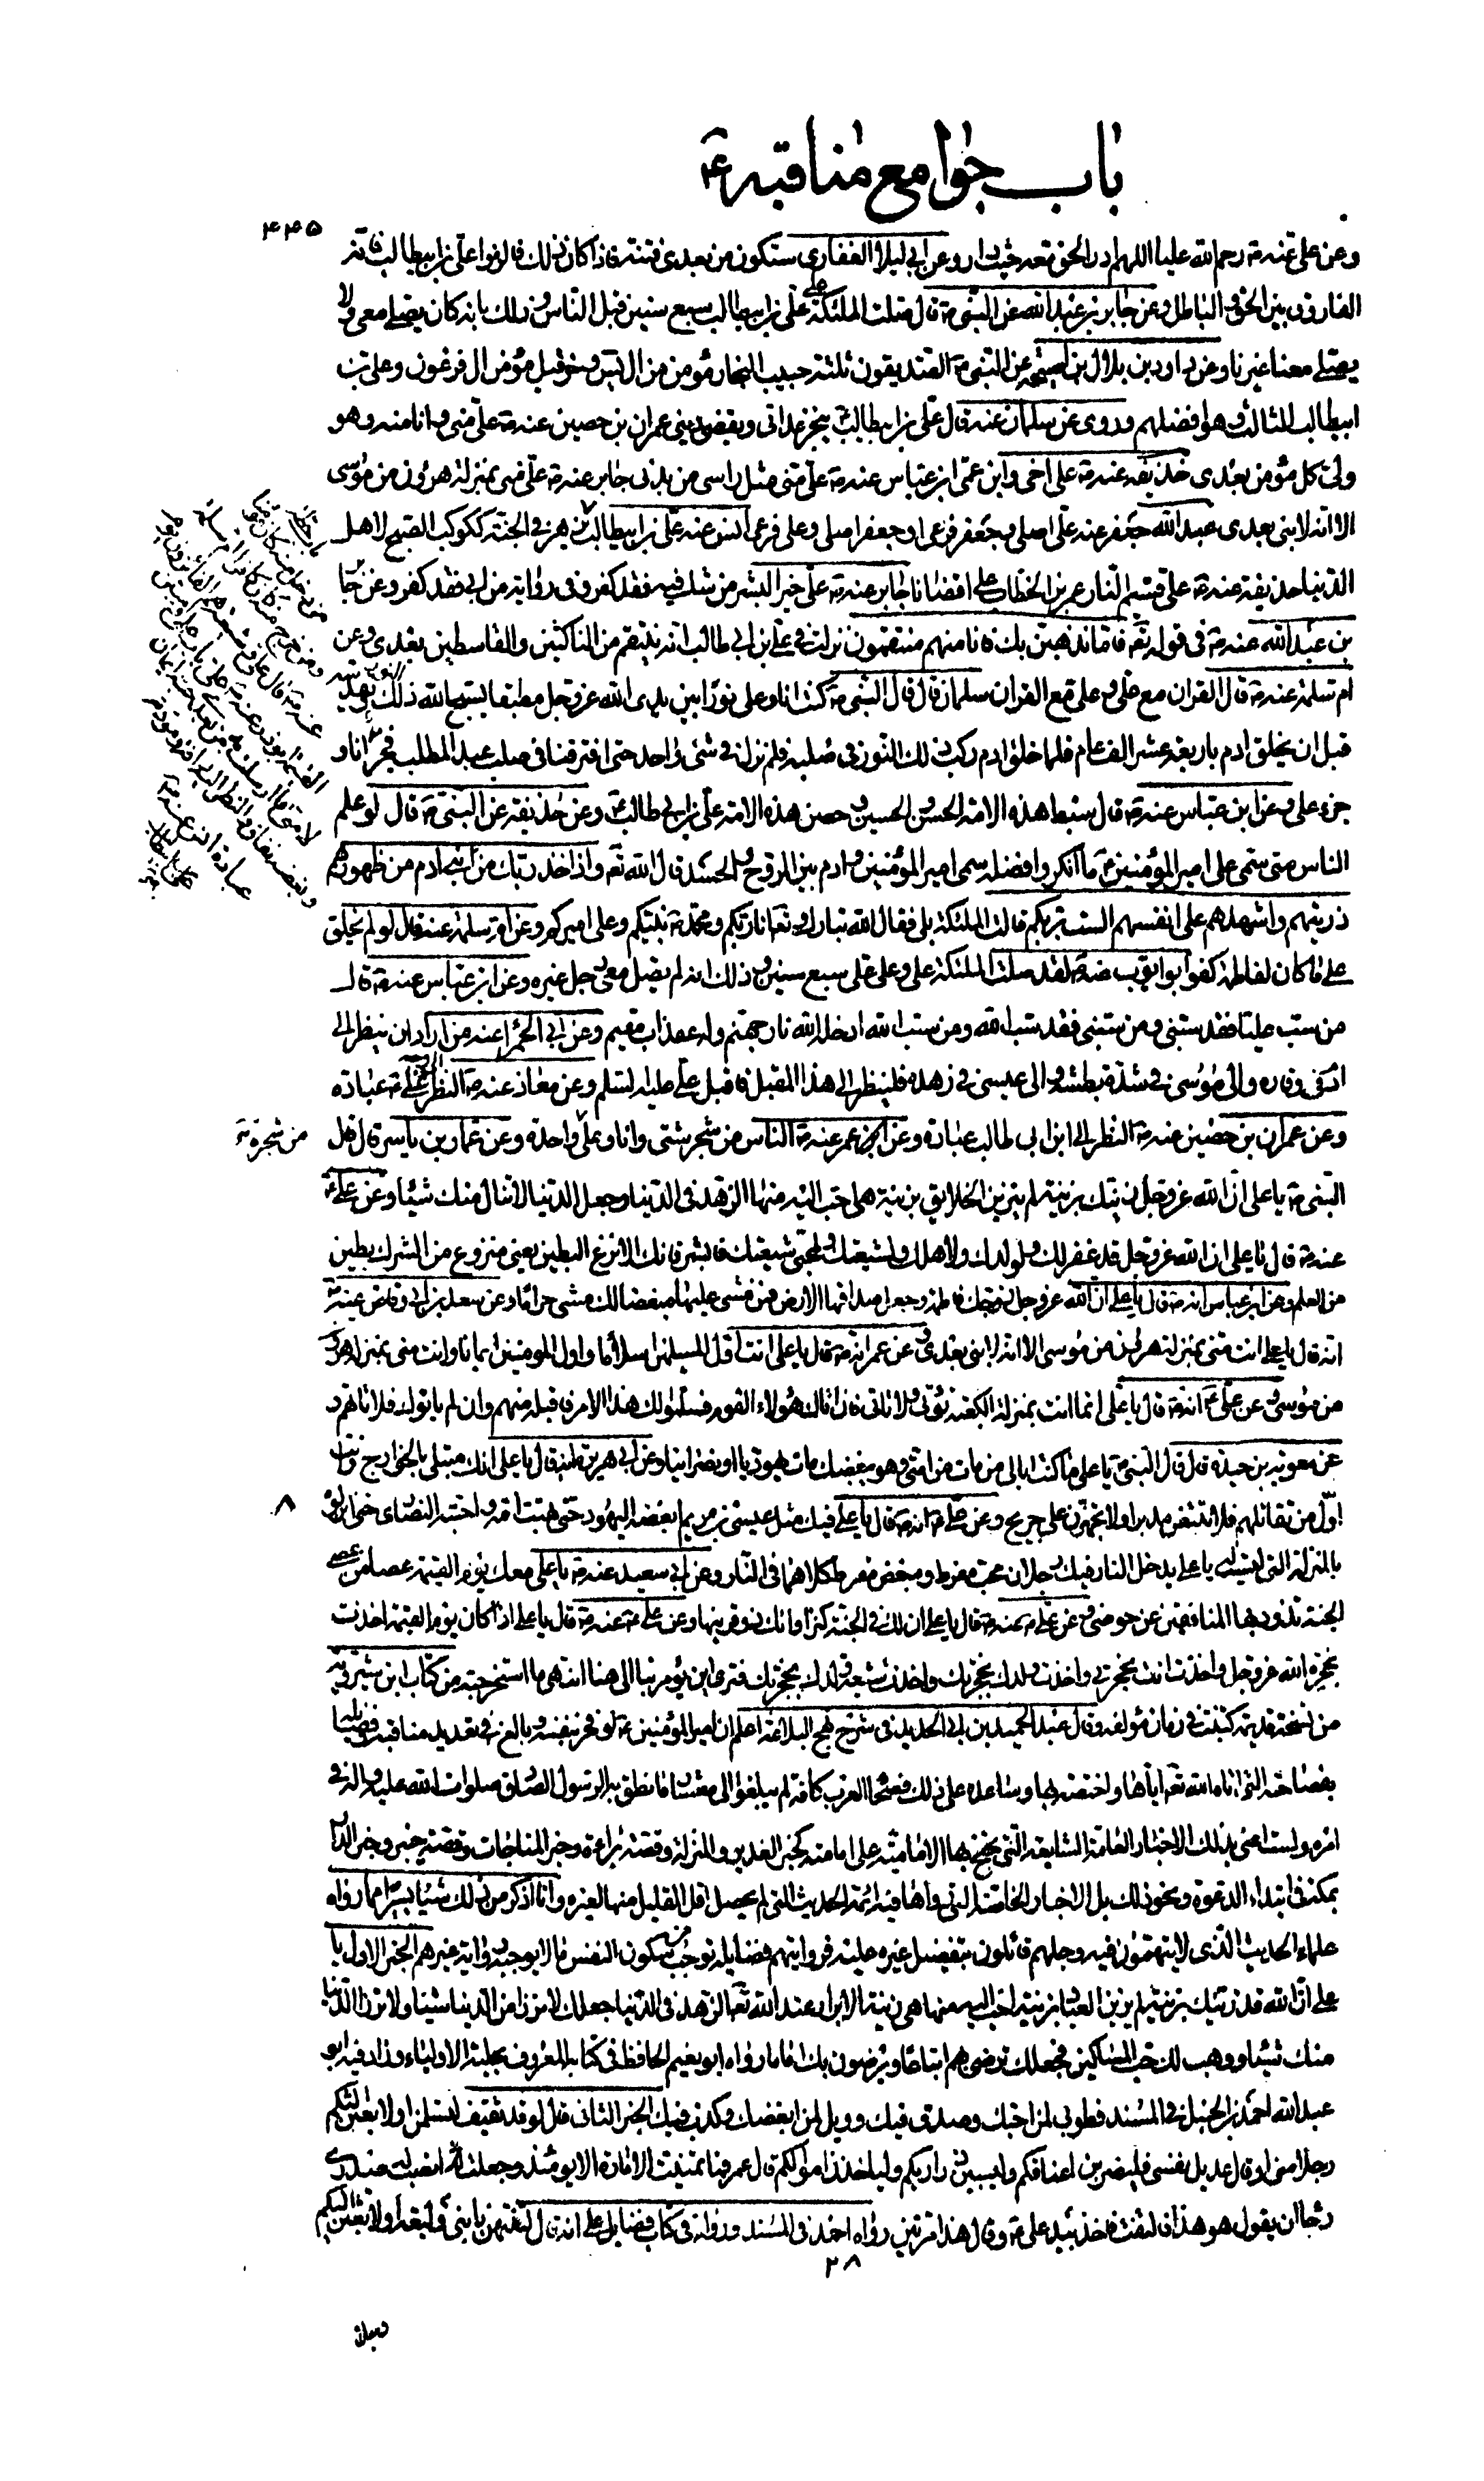 باب جوامع مناقبه ع
۴۴۵
وعن علي عنه ص رحم الله عليا اللهم ادر الحق معه حيث دار وعن ابي ليلا الغفاري ستكون من بعدي فتنة فاذا كان ذلك فالزموا علي بن ابيطالب فانه
الفاروق بين الحق والباطل وعن جابر بن عبد الله عن النبي ص قال صلت الملئكة علي علي بن ابيطالب سبع سنين قبل الناس وذلك بانه كان يصلي معي ولا
يصلي معنا غيرنا وعن داود بن بلال بن عن النبي ص الصديقون ثلثة حبيب النجار مؤمن من ال يس وحزقيل مؤمن ال فرعون وعلي بن
ابيطالب الثالث وهو افضلهم وروى عن سلمان عنه قال علي بن ابيطالب ينجز عداتي ويقضي ديني عمران بن حصين عنه ص علي مني وانا منه وهو
ولي كل مؤمن بعدي حذيفه عنه ص علي اخي وابن عمي ابن عباس عنه ص علي مني مثل راسي من بدني جابر عنه ص علي مني بمنزلة هرون من موسى
الا انه لا نبي بعدي عبد الله جعفر عنه علي اصلي وجعفر فرعي او جعفر اصلي وعلي فرعي انس عنه علي بن ابيطالب يزهر في الجنة ككوكب الصبح لاهل
الدنيا حذيفة عنه ص علي قسيم النار عمر بن الخطاب علي اقضانا جابر عنه ص علي خير البشر من شك فيه فقد كفر وفي رواية من ابي فقد كفر وعن جابر
بن عبد الله عنه ص في قوله تع فاما نذهبن بك فانا منهم منتقمون نزلت في علي بن ابي طالب انه ينتقم من الناكثين والقاسطين بعدي وعن
ام سلمة عنه ص قال القران مع علي وعلي مع القران سلمان قال قال النبي ص كنت انا وعلي نورا بين يدي الله عز وجل مطيقا يسبح الله ذلك النور ويقدسه
قبل ان يخلق ادم باربعة عشر الف عام فلما خلق ادم ركب ذلك النور في صلبه فلم نزل في شئ واحد حتى افترقنا في صلب عبد المطلب فجزء انا و
جزء علي وعن ابن عباس عنه ص قال سبطا هذه الامة الحسن والحسين وحصن هذه الامة علي بن ابي طالب ع وعن حذيفة عن النبي ص قال لو علم
الناس متى سمي علي امير المؤمنين ع ما انكروا فضله سمي امير المؤمنين وادم بين الروح والجسد قال الله تع واذا اخذ ربك من بني ادم من ظهورهم
ذريتهم واشهدهم على انفسهم الست بربكم قالت الملئكة بلى فقال الله تبارك وتع انا ربكم ومحمد ص نبيكم وعلي اميركم وعن ام سلمة عنه قال لو لم يخلق
علي ما كان لفاطمة كفو ابو ايوب عنه ص لقد صلت الملئكة علي وعلى علي سبع سنين وذلك انه لم يصل معي رجل غيره وعن ابن عباس عنه ص قال
من سب عليا فقد سبني ومن سبني فقد سب الله ومن سب الله ادخله الله نار جهنم وله عذاب مقيم وعن ابي الحمراء عنه من اراد ان ينظر الى
ادم في وقاره والى موسى في شدة بطشه والى عيسى في زهده فلينظر الى هذا المقبل فاقبل علي عليه السلم وعن معاذ عنه ص النظر الى وجه علي ع عبادة
وعن عمران بن حصين عنه ص النظر الى ابن ابي طالب عبادة وعن ابن عمر عنه ص الناس من شجر شتى وانا وعلي من شجرة واحدة وعن عمار بن ياسر قال قال
النبي ص يا علي ان الله عز وجل زينك بزينة لم يتزين الخلايق بزينة هي احب اليه منها الزهد في الدنيا وجعل الدنيا لا تنال منك شيئا وعن علي ع
عنه ص قال يا علي ان الله عز وجل قد غفر لك ولولدك ولاهلك ولشيعتك ولمحبي شيعتك فابشر فانك الانزع البطين يعني منزوع من الشرك بطين
من العلم وعن ابن عباس انه ص قال يا علي ان الله عز وجل زوجك فاطمة وجعل صداقها الارض فمن مشى عليها مبغضا لك مشى حراما وعن سعد بن ابي وقاص عنه ص
انه قال يا علي انت مني بمنزلة هرون من موسى الا انه لا نبي بعدي وعن عمر انه ص قال يا علي انت اول المسلمين اسلاما واول المومنين ايمانا وانت مني بمنزلة هرون
من موسى وعن علي ع انه ص قال يا علي انما انت بمنزلة الكعبة تؤتى ولا تاتي فان اتاك هولاء القوم فسلموا لك هذا الامر فاقبله منهم وان لم ياتوك فلا تاتهم و
عن معوية بن حيدة قال قال النبي ص يا علي ما كنت ابالي من مات من امتي وهو يبغضك مات يهوديا او نصرانيا وعن ابي هريرة انه قال يا علي انك مبتلى بالخوارج وانت
اول من يقاتلهم فلا تتبعن مدبرا ولا تجهزن على جريح وعن علي ع انه ص قال يا علي فيك مثل عيسى بن مريم ابغضه اليهود حتى بهتت امه واحبته النصارى حتى انزلوه
بالمنزلة التي ليست له يا علي يدخل النار فيك رجلان محب مفرط ومبغض مفرط كلاهما في النار وعن ابي سعيد عنه ص يا علي معك يوم القيمة عصا من عصي
الجنة تذود بها المنافقين عن حوضي وعن علي ع عنه ص قال يا علي ان لك في الجنة كنزا وانك ذو قرنيها وعن علي ع عنه ص قال يا علي اذا كان يوم القيمة اخذت
بحجزة الله عز وجل واخذت انت بحجزتي واخذت ولدك بحجزتك واخذت شيعة ولدك بحجزتك فترى اين يؤمر بنا الى هنا انتهى ما استخرجته من كتاب ابن شيرويه
من نسخة قديمة كتبت في زمان مؤلفه وقال عبد الحميد بن ابي الحديد في شرح نهج البلاغة اعلم ان امير المؤمنين ع لو فخر بنفسه وبالغ في تعديد مناقبه وفضايله
بفصاحته التي اتاه الله تع اياها واختصه بها وساعده على ذلك فصحاء العرب كافة لم يبلغوا الى معشار ما نطق به الرسول الصادق صلوات الله عليه واله في
امره ولست اعني بذلك الاخبار العامة الشايعة التي يحتج بها الامامية على امامته كخبر الغدير والمنزلة وقصة براءة وخبر المناجات وقصة خيبر وخبر الدار
بمكة في ابتداء الدعوة ونحو ذلك بل الاخبار الخاصة التي رواها فيه ائمة الحديث التي لم يحصل اقل القليل منها لغيره وانا اذكر من ذلك شيئا يسيرا مما رواه
علماء الحديث الذي لا يتهمون فيه وجلهم قائلون بتفضيل غيره عليه فروايتهم فضايله توجب من سكون النفس ما لا يوجبه رواية غيرهم الخبر الاول يا
علي ان الله قد زينك بزينة لم يزين العباد بزينة احب اليه منها هي زينة الابرار عند الله تع الزهد في الدنيا جعلك لا ترزا من الدنيا شيئا ولا ترزا الدنيا
منك شيئا ووهب لك حب المساكين فجعلك ترضى بهم اتباعا ويرضون بك اماما رواه ابو نعيم الحافظ في كتابه المعروف بحلية الاولياء وزاد فيه ابو
عبد الله احمد بن الحنبل في المسند فطوبى لمن احبك وصدق فيك وويل لمن ابغضك وكذب فيك الخبر الثاني قال لوفد ثقيف لتسلمن او لابعثن اليكم
رجلا مني او قال عديل نفسي فليضربن اعناقكم وليسبين ذراريكم ولياخذن اموالكم قال عمر فما تمنيت الامارة الا يومئذ وجعلت انصب له صدري
رجا ان يقول هو هذا فالتفت فاخذ بيد علي ع وقال هذا مرتين رواه احمد في المسند ورواه في كتاب فضايل علي انه قال لتنتهن يا بني وليعة او لابعثن اليكم
۲۸
رجلا